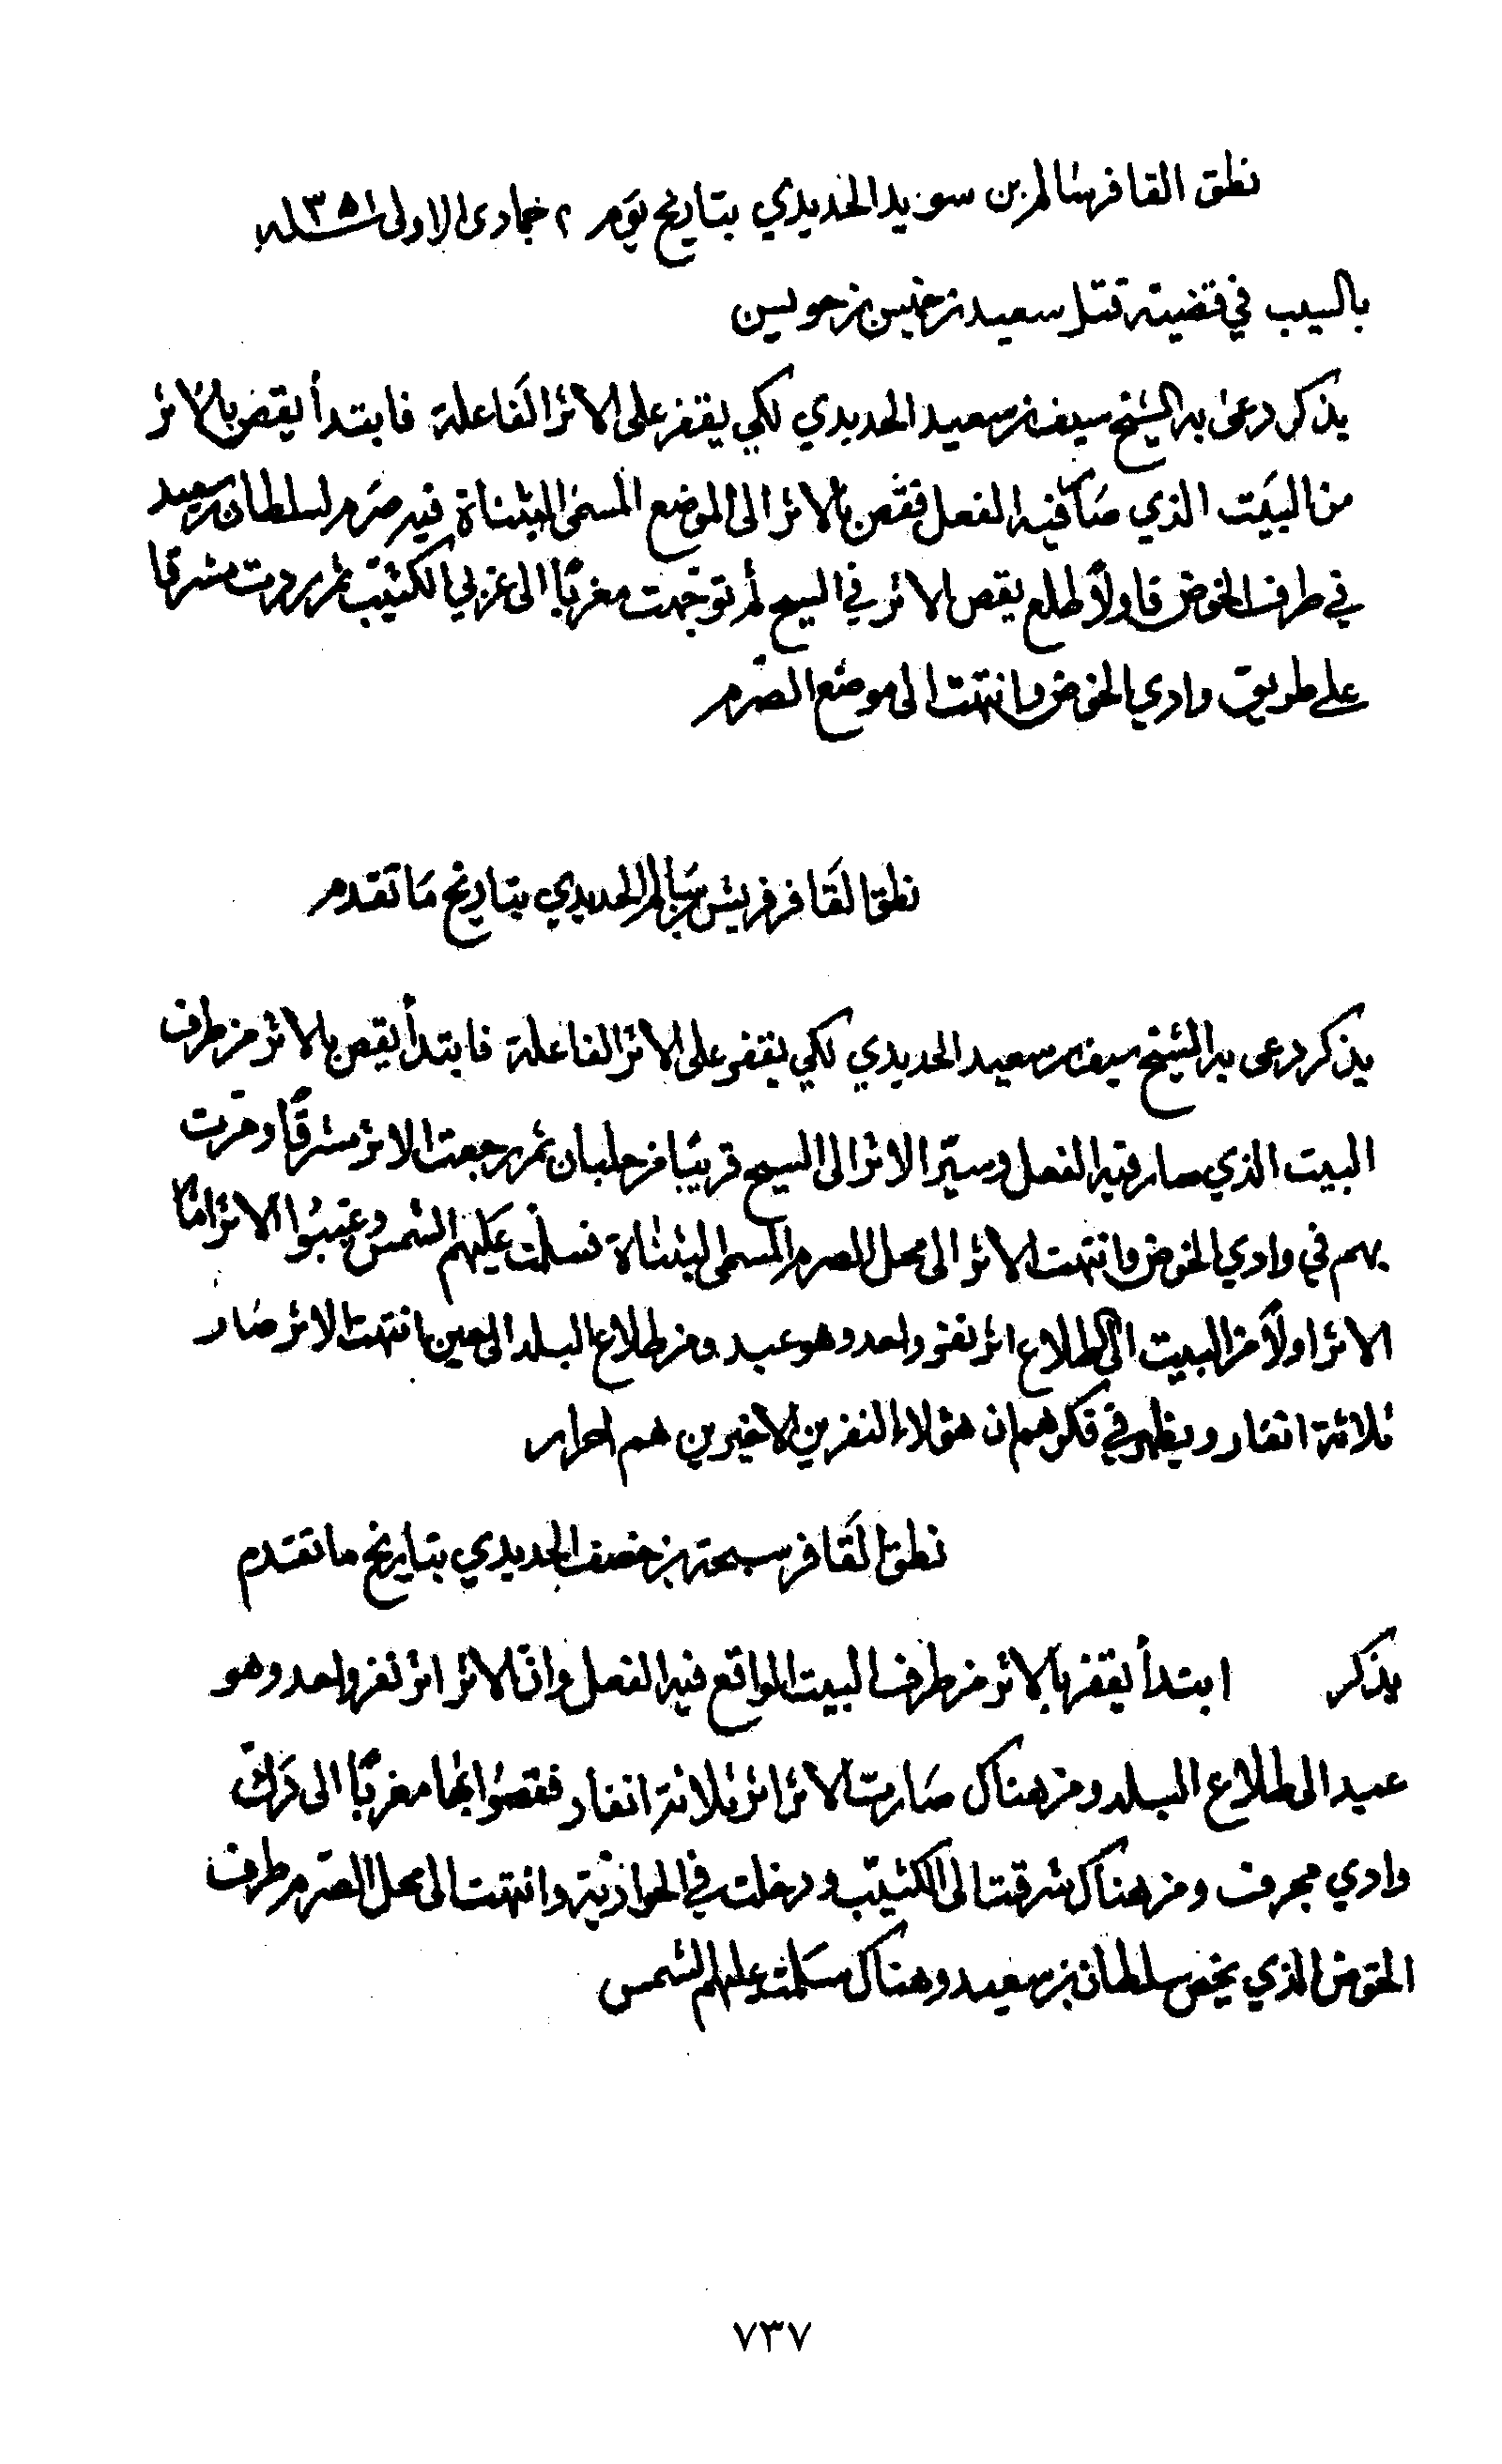 نطق القافر سالم بن سويد الحديدي بتاريخ يوم ٢ جمادى الاولى سنة ١٣٥١
بالسيب في قضية قتل سعيد بن خنيس بن حويسن
يذكر دعى به الشيخ سيف بن سعيد الحديدي لكي يقفر على الاثر الفاعلة فابتدأ يقص بالاثر
من البيت الذي صار فيه الفعل فقص بالاثر الى الموضع المسمى البثناة فيه صرم لسلطان بن سعيد
في طرف الخوض فاولاً طلع يقص الاثر في السيح ثم توجهت مغربًا الى غربي الكثيب ثم ردت مشرقا
على طريق وادي الخوض وانتهت الى موضع الصرم
نطق القافر فريش بن سالم الحديدي بتاريخ ما تقدم
يذكر دعى به الشيخ سيف بن سعيد الحديدي لكي يقفر على الاثر الفاعلة فابتدأ يقص بالاثر من طرف
البيت الذي صار فيه الفعل وسيّر الاثر الى السيح قريبًا من حلبان ثم رجعت الاثر مشرقًا ومرّت
بهم في وادي الخوض وانتهت الاثر الى محل الصرم المسمى البثناة فسلمت عليهم الشمس وغيبوا الاثر امّا
الاثر اولاً من البيت الى طلاع اثر نفر واحد وهو عبيد ومن طلاع البلد الى حين انتهت الاثر صار
ثلاثة انفار ويظهر في فكرهم ان هؤلاء النفرين الاخيرين هم احرار
نطق القافر سبحة بن خصف الحديدي بتاريخ ما تقدم
يذكر ابتدأ يقفر بالاثر من طرف البيت الواقع فيه الفعل وانّ الاثر اثر نفر واحد وهو
عبيد الى طلاع البلد ومن هناك صارت الاثر اثر ثلاثة انفار فقصوا بها مغربًا الى درك
وادي مجرف ومن هناك شرقت الى الكثيب ودخلت في الحواذية وانتهت الى محل الصرم طرف
الخوض الذي يخص سلطان بن سعيد وهناك سلمت عليهم الشمس
٧٣٧